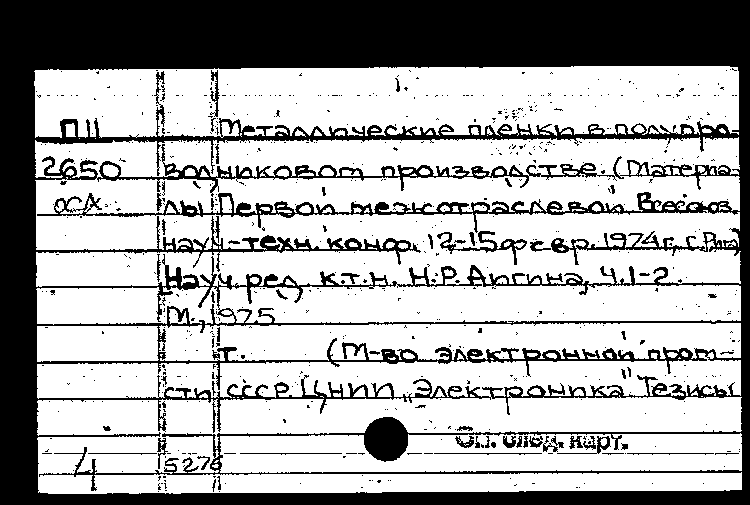 1.
П11 Металлические пленки в полупро-
2650 водниковом производстве. (Материа-
ОСА лы Первой межотраслевой Всесоюз.
науч-техн. конф. 12-15 февр. 1974г, г. Рига)
Науч. ред. к.т.н. Н.Р. Аигина, Ч.1-2.
М., 1975
т. (М-во электронной пром-
сти СССР. ЦНИИ „Электроника" Тезисы
См. след. карт.
4 5276